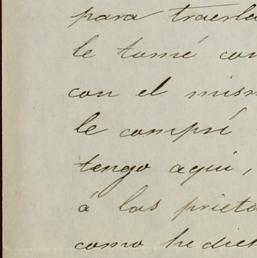 para traerla
le tomé con
con el mism
le compré
tengo aquí,
á los prieto
como he dich